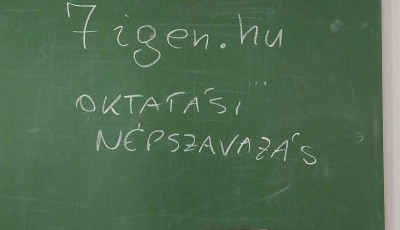 7igen.hu
OKTATÁSI
NÉPSZAVAZÁS